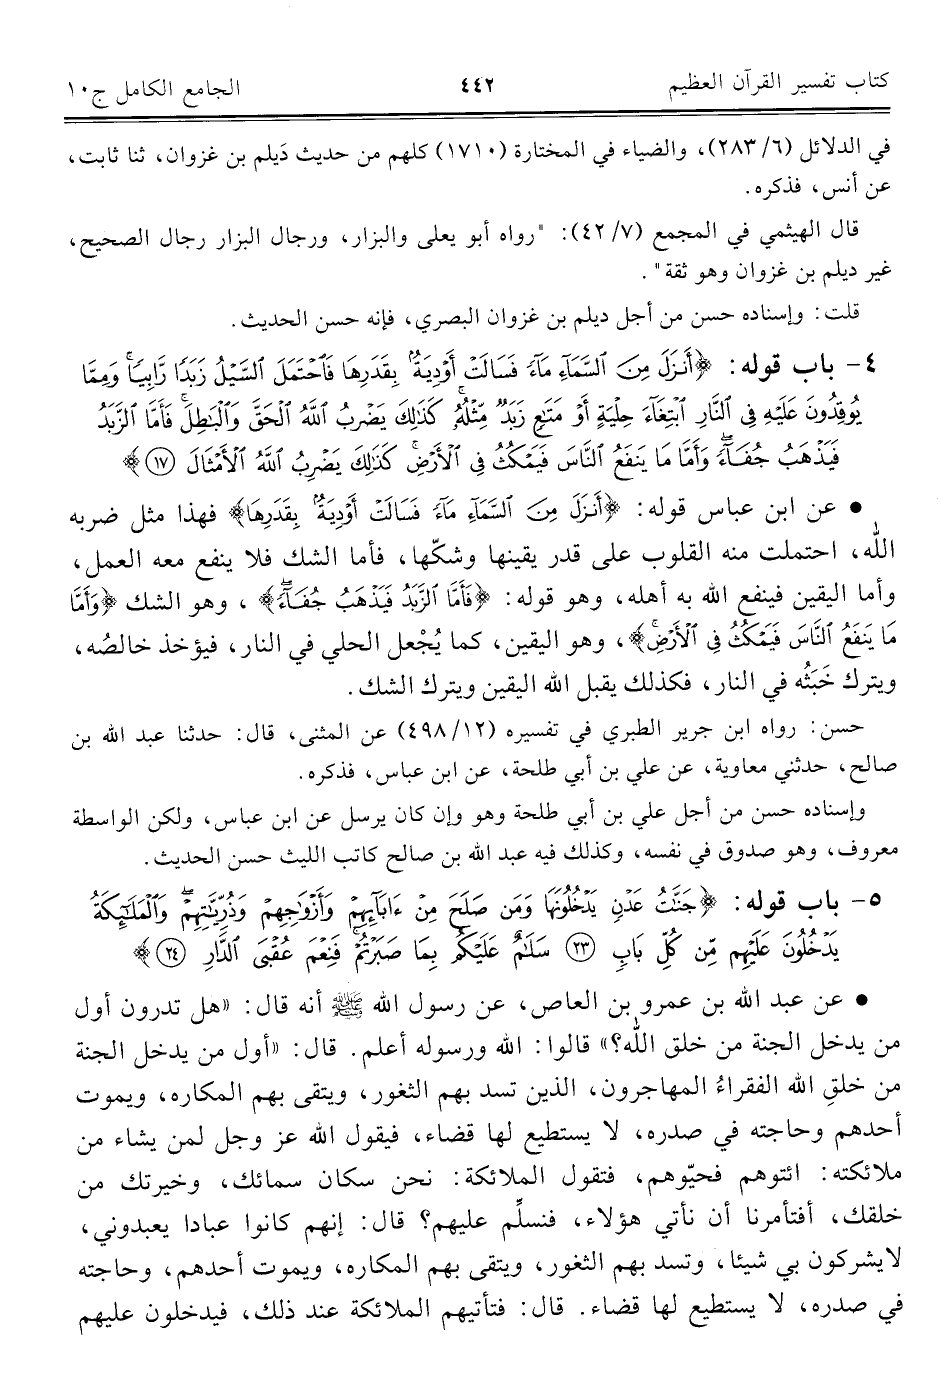 كتاب تفسير القرآن العظيم ٤٤٢ الجامع الكامل ج١٠
في الدلائل (٢٨٣/٦)، والضياء في المختارة (١٧١٠) كلهم من حديث دَيلم بن غزوان، ثنا ثابت،
عن أنس، فذكره.
قال الهيثمي في المجمع (٤٢/٧): "رواه أبو يعلى والبزار، ورجال البزار رجال الصحيح،
غير ديلم بن غزوان وهو ثقة".
قلت: وإسناده حسن من أجل ديلم بن غزوان البصري، فإنه حسن الحديث.
٤- باب قوله: ﴿أَنزَلَ مِنَ ٱلسَّمَآءِ مَآءً فَسَالَتْ أَوْدِيَةٌۢ بِقَدَرِهَا فَٱحْتَمَلَ ٱلسَّيْلُ زَبَدًا رَّابِيًا ۚ وَمِمَّا
يُوقِدُونَ عَلَيْهِ فِى ٱلنَّارِ ٱبْتِغَآءَ حِلْيَةٍ أَوْ مَتَٰعٍ زَبَدٌ مِّثْلُهُۥ ۚ كَذَٰلِكَ يَضْرِبُ ٱللَّهُ ٱلْحَقَّ وَٱلْبَٰطِلَ ۚ فَأَمَّا ٱلزَّبَدُ
فَيَذْهَبُ جُفَآءً ۖ وَأَمَّا مَا يَنفَعُ ٱلنَّاسَ فَيَمْكُثُ فِى ٱلْأَرْضِ ۚ كَذَٰلِكَ يَضْرِبُ ٱللَّهُ ٱلْأَمْثَالَ (١٧)﴾
• عن ابن عباس قوله: ﴿أَنزَلَ مِنَ ٱلسَّمَآءِ مَآءً فَسَالَتْ أَوْدِيَةٌۢ بِقَدَرِهَا﴾ فهذا مثل ضربه
الله، احتملت منه القلوب على قدر يقينها وشكّها، فأما الشك فلا ينفع معه العمل،
وأما اليقين فينفع الله به أهله، وهو قوله: ﴿فَأَمَّا ٱلزَّبَدُ فَيَذْهَبُ جُفَآءً ۖ﴾، وهو الشك ﴿وَأَمَّا
مَا يَنفَعُ ٱلنَّاسَ فَيَمْكُثُ فِى ٱلْأَرْضِ ۚ﴾، وهو اليقين، كما يُجْعل الحلي في النار، فيؤخذ خالصُه،
ويترك خَبَثُه في النار، فكذلك يقبل الله اليقين ويترك الشك.
حسن: رواه ابن جرير الطبري في تفسيره (٤٩٨/١٢) عن المثنى، قال: حدثنا عبد الله بن
صالح، حدثني معاوية، عن علي بن أبي طلحة، عن ابن عباس، فذكره.
وإسناده حسن من أجل علي بن أبي طلحة وهو وإن كان يرسل عن ابن عباس، ولكن الواسطة
معروف، وهو صدوق في نفسه، وكذلك فيه عبد الله بن صالح كاتب الليث حسن الحديث.
٥- باب قوله: ﴿جَنَّٰتُ عَدْنٍ يَدْخُلُونَهَا وَمَن صَلَحَ مِنْ ءَابَآئِهِمْ وَأَزْوَٰجِهِمْ وَذُرِّيَّٰتِهِمْ ۖ وَٱلْمَلَٰٓئِكَةُ
يَدْخُلُونَ عَلَيْهِم مِّن كُلِّ بَابٍ (٢٣) سَلَٰمٌ عَلَيْكُم بِمَا صَبَرْتُمْ ۚ فَنِعْمَ عُقْبَى ٱلدَّارِ (٢٤)﴾
• عن عبد الله بن عمرو بن العاص، عن رسول الله ﷺ أنه قال: «هل تدرون أول
من يدخل الجنة من خلق الله؟» قالوا: الله ورسوله أعلم. قال: «أول من يدخل الجنة
من خلقِ الله الفقراءُ المهاجرون، الذين تسد بهم الثغور، ويتقى بهم المكاره، ويموت
أحدهم وحاجته في صدره، لا يستطيع لها قضاء، فيقول الله عز وجل لمن يشاء من
ملائكته: ائتوهم فحيّوهم، فتقول الملائكة: نحن سكان سمائك، وخيرتك من
خلقك، أفتأمرنا أن نأتي هؤلاء، فنسلِّم عليهم؟ قال: إنهم كانوا عبادا يعبدوني،
لايشركون بي شيئا، وتسد بهم الثغور، ويتقى بهم المكاره، ويموت أحدهم، وحاجته
في صدره، لا يستطيع لها قضاء. قال: فتأتيهم الملائكة عند ذلك، فيدخلون عليهم